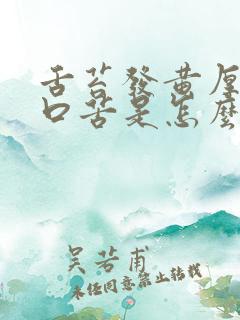 舌苔發黃厚
口苦是怎麼
吴若甫
未经同意禁止转载